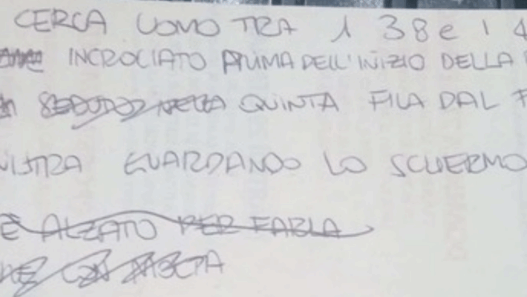 CERCA UOMO TRA I 38 e I 4
INCROCIATO PRIMA DELL'INIZIO DELLA
QUINTA FILA DAL F
NISTRA GUARDANDO LO SCHERMO
È ALZATO PER FARLA